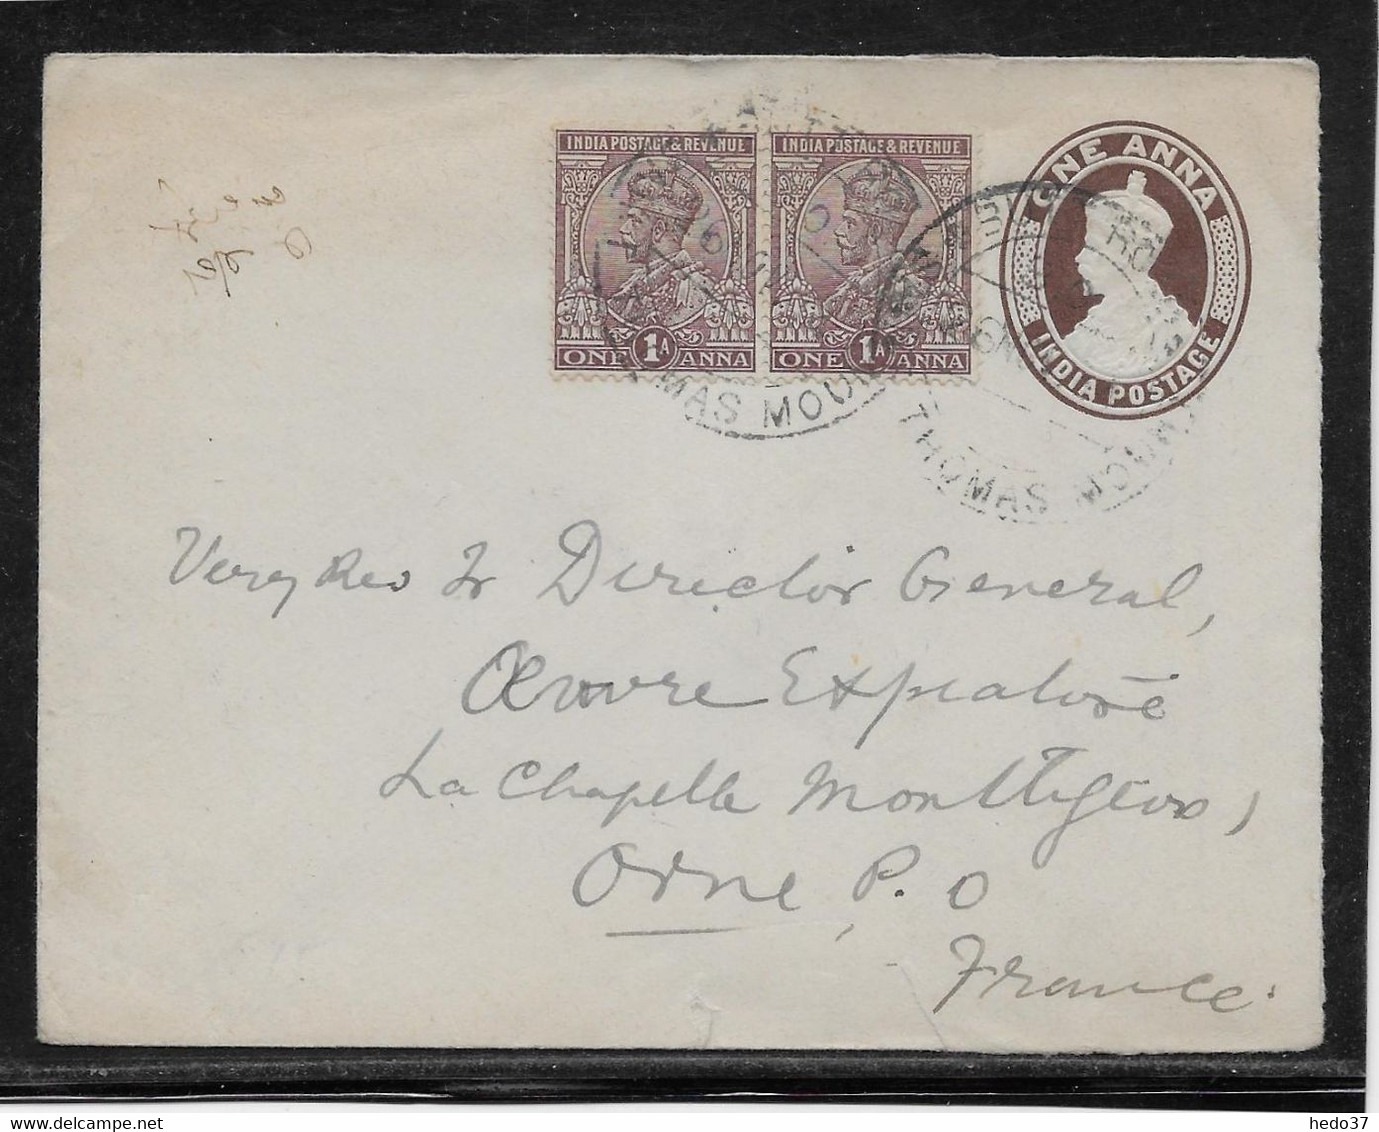 INDIA POSTAGE & REVENUE
ONE 1A ANNA
INDIA POSTAGE & REVENUE
ONE 1A ANNA
ONE ANNA
INDIA POSTAGE
MAS MOUN
THOMAS MOUNT
Very Rev Fr Director General,
Œuvre Expiatoire
La Chapelle Monttigeox,
Orne, P. O
France.
hedo37